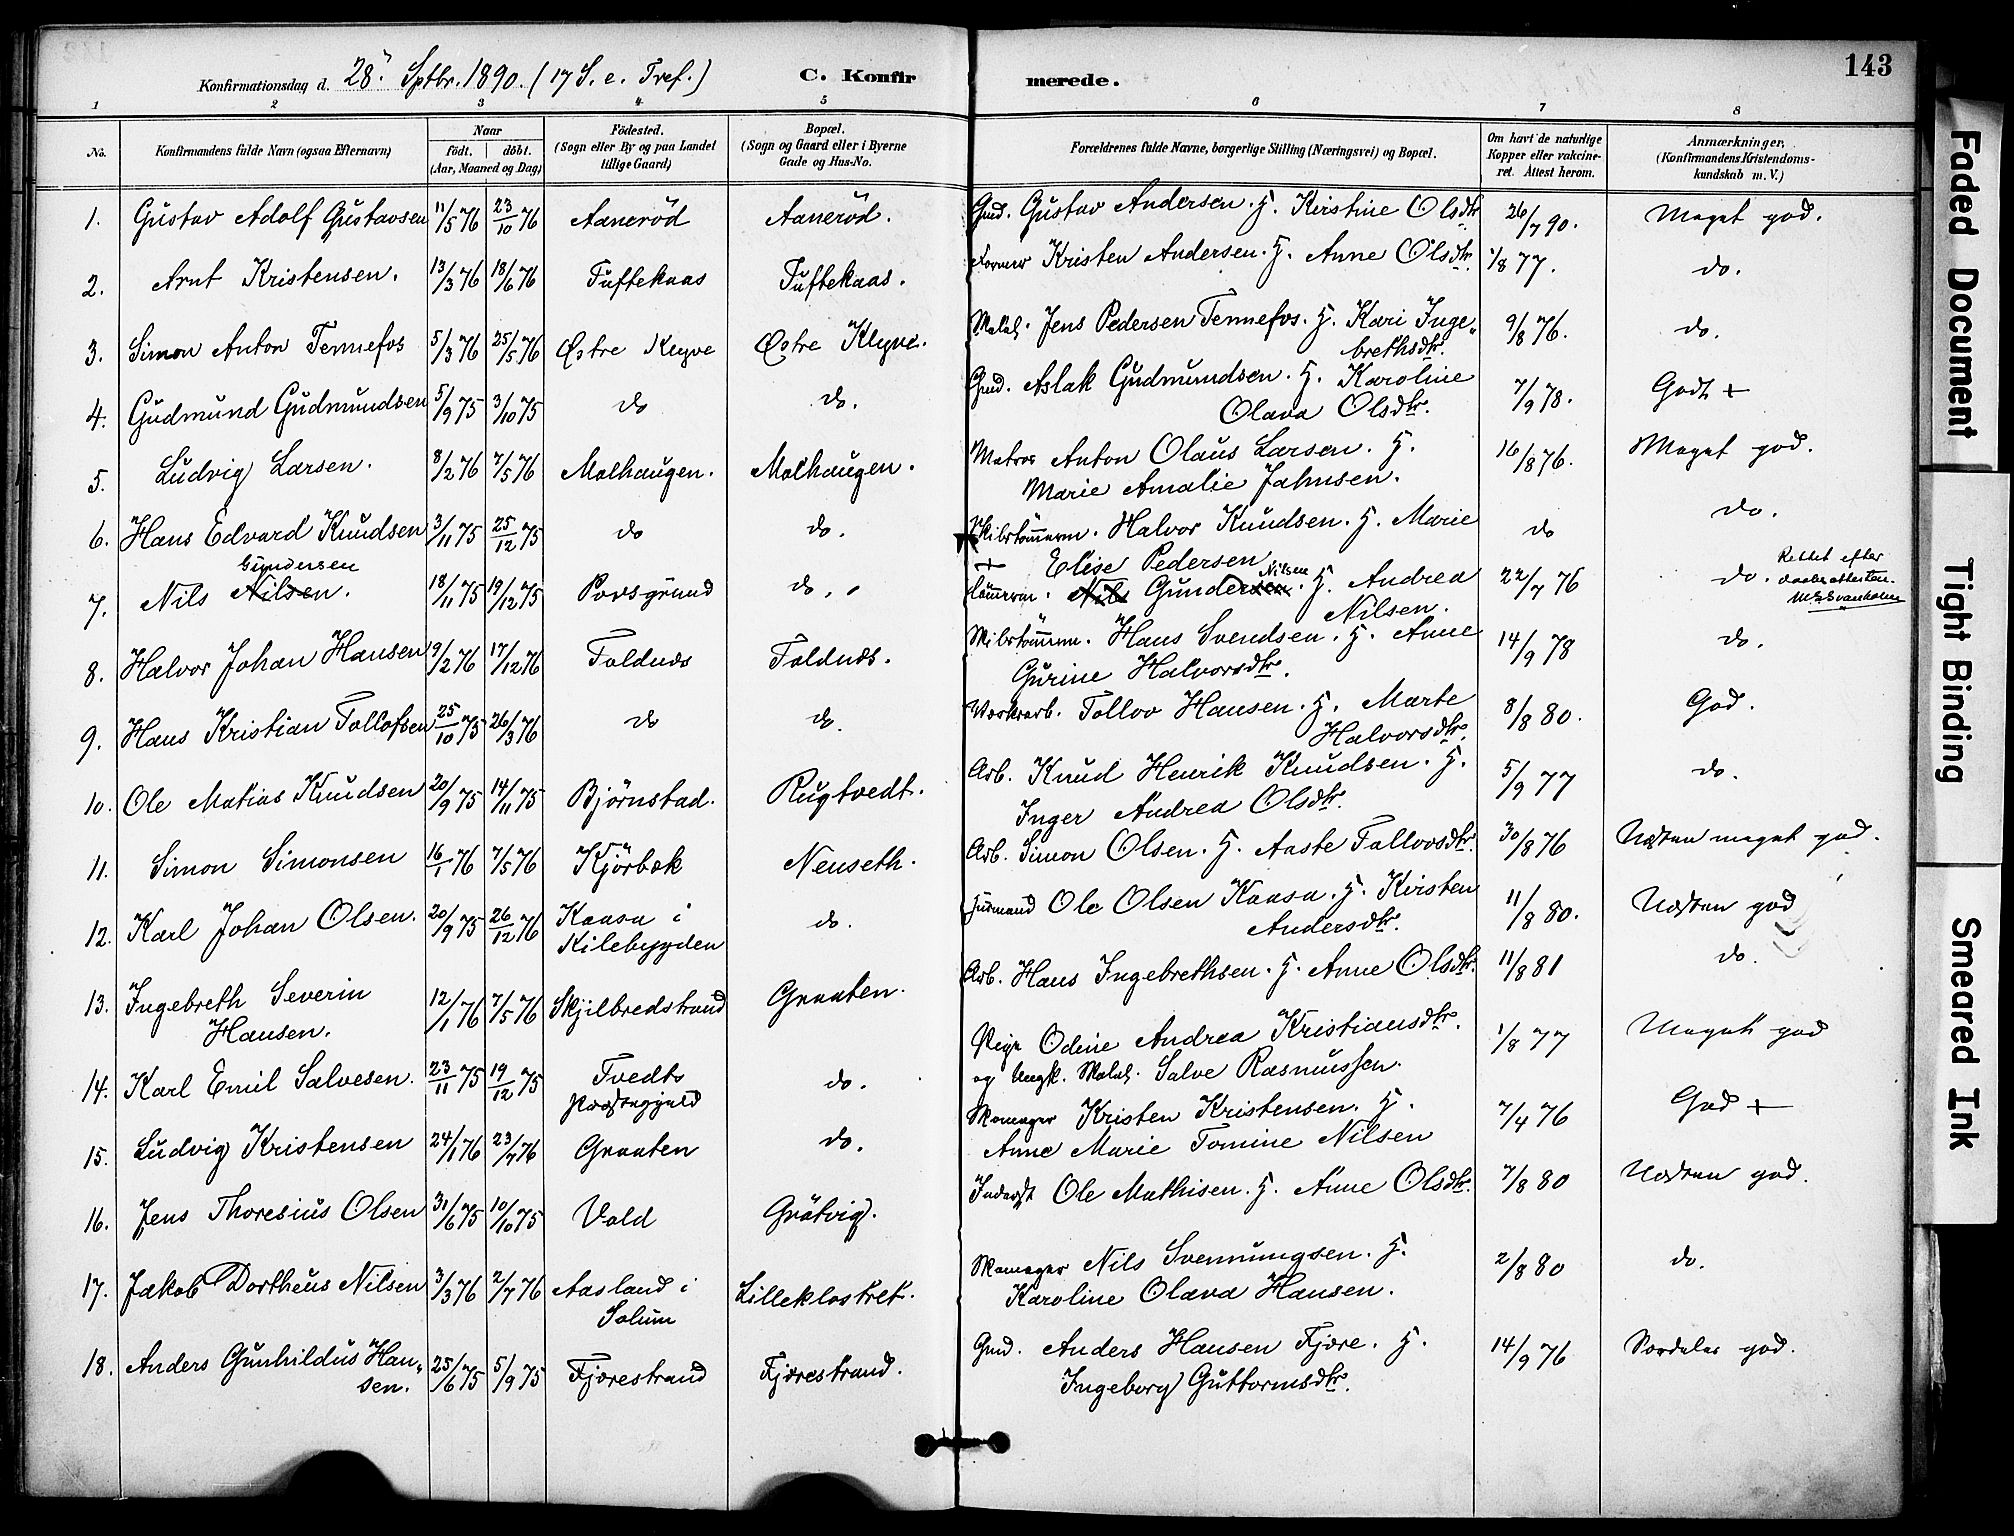 143
Konfirmationsdag d. 28. Sptbr. 1890. (17 S. e. Tref.) C. Konfirmerede.
1 2 3 4 5 6 7 8
No. Konfirmandens fulde Navn (ogsaa Efternavn) Naar födt. döbt. (Aar, Maaned og Dag) Födested. (Sogn eller By og paa Landet tillige Gaard) Bopæl. (Sogn og Gaard eller i Byerne Gade og Hus-No. Forældrenes fulde Navne, borgerlige Stilling (Næringsvei) og Bopæl. Om havt de naturlige Kopper eller vakcineret. Attest herom. Anmærkninger, (Konfirmandens Kristendomskundskab m. V.)
1. Gustav Adolf Gustavsen 11/5 76 23/10 76 Aanerød Aanerød. Gmd. Gustav Andersen. H. Kirstine Olsdtr 26/7 90. Meget god.
2. Arnt Kristensen. 13/3 76 18/6 76 Tuftekaas Tuftekaas. Former Kristen Andersen. H. Anne Olsdtr. 1/8 77. do.
3. Simon Anton Tennefos 5/3 76 25/5 76 Østre Klyve Østre Klyve. Jens Pedersen Tennefos. H. Kari Inge- 9/8 76. do.
brethsdtr.
4. Gudmund Gudmundsen 5/9 75 3/10 75 do do. Gmd. Aslak Gudmundsen. H. Karoline 7/9 78. Godt +
Olava Olsdtr.
5. Ludvig Larsen. 8/2 76 7/5 76 Molhaugen. Molhaugen. Matros Anton Olaus Larsen. H. 16/8 76. Meget god.
Marie Amalie Jahnsen.
6. Hans Edvard Knudsen 3/11 75 25/12 75 do do. Skibstömmerm. Halvor Knudsen. H. Marie do do.
Elise Pedersen
Gundersen
7. Nils Nilsen. 18/11 75 19/12 75 Porsgrund do. Tömmerm. Nils Gundersen Nilsen. H. Andrea 22/7 76 do. Rettet efter
Nilsen.
daabsattesten.
8. Halvor Johan Hansen 9/2 76 17/12 76 Toldnæs Toldnæs. Skibstömmerm. Hans Svendsen. H. Anne 14/9 78 do.
Gurine Halvorsdtr.
9. Hans Kristian Tollofsen 25/10 75 26/3 76 do do. Værksarb. Tollov Hansen. H. Marte 8/8 80. God.
Halvorsdtr.
10. Ole Matias Knudsen 20/9 75 14/11 75 Björnstad. Rugtvedt. Arb. Knud Henrik Knudsen. H. 5/9 77 do.
Inger Andrea Olsdtr.
11. Simon Simonsen 16/1 76 7/5 76 Kjörbæk Nenseth. Arb. Simon Olsen. H. Aaste Tollovsdtr. 30/8 76 Næsten meget god.
12. Karl Johan Olsen. 20/9 75 26/12 76 Kaasa i Kilebygden do. Husmand Ole Olsen Kaasa. H. Kirsten 11/8 80. Næsten god
Andersdtr.
13. Ingebreth Severin Hansen. 12/1 76 7/5 76 Skjilbredstrand Graaten. Arb. Hans Ingebrethsen. H. Anne Olsdtr. 11/8 81 do.
14. Karl Emil Salvesen. 23/11 75 19/12 75 Tvedts Præstegjeld do. Pige Odine Andrea Kristiansdtr. 1/8 77 Meget god
og Ungk. Salve Rasmussen.
15. Ludvig Kristensen 24/1 76 23/7 76 Graaten do. Skomager Kristen Kristensen. H. 7/4 76 God +
Anne Marie Tomine Nilsen
16. Jens Thoresius Olsen 31/6 75 10/10 75 Vold Gråtvig. Inderst Ole Mathisen. H. Anne Olsdtr. 7/8 80 Næsten god.
17. Jakob Dortheus Nilsen 3/3 76 2/7 76 Aasland i Solum Lilleklostret. Skomager Nils Svennungsen. H. 2/8 80 do.
Karoline Olava Hansen.
18. Anders Gunhildus Hansen. 25/6 75 5/9 75 Fjærestrand Fjærestrand. Gmd. Anders Hansen Fjære. H. 14/9 76 Særdeles god.
Ingeborg Guttormsdtr.
Faded Document
Tight Binding
Smeared Ink